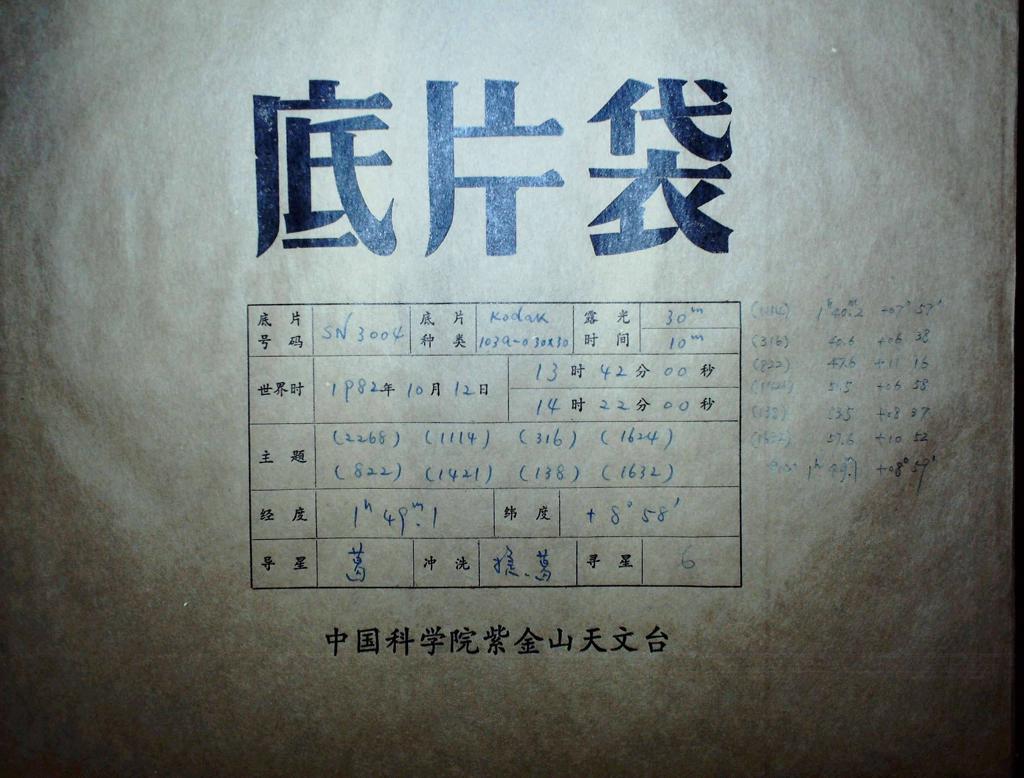 底片袋
底片号码 SN 3004 底片种类 Kodak 103a-O 30x30 露光时间 30m 10m
世界时 1982年 10月 12日 13时 42分 00秒
14时 22分 00秒
主题 (2268) (1114) (316) (1624)
(822) (1421) (138) (1632)
经度 1h 49m.1 纬度 +8° 58'
导星 葛 冲洗 葛 寻星 6
中国科学院紫金山天文台
(1114) 1h 40m.2 +07° 57'
(316) 40.6 +06 38
(822) 47.6 +11 16
51.5 +06 58
(138) 53.5 +08 37
(1632) 57.6 +10 52
1h 49.1 +08° 59'